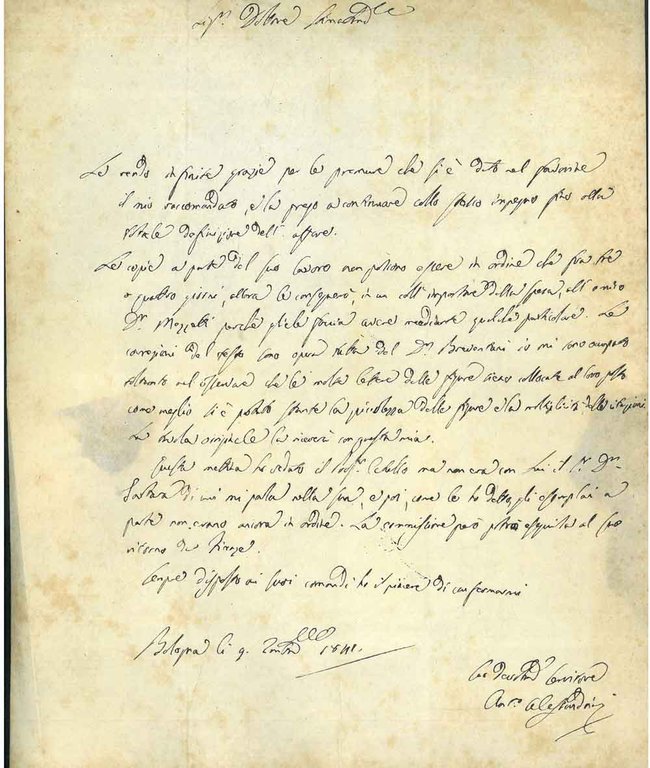 Sigr. Dottore
Le rendo infinite grazie per le premure che si è dato nel favorire
il mio raccomandato, e la prego a continuare collo stesso impegno fino alla
totale definizione dell' affare.
Le copie a parte del suo lavoro non potranno essere in ordine che fra tre
o quattro giorni, allora le consegnerò, in un coll' importare della spesa, all' ottimo
Dr. perchè gliele faccia avere mediante qualche particolare. Le
correzioni del testo sono opera tutta del Dr. io mi sono occupato
soltanto nell' osservare che le molte lettere delle figure siano collocate al loro posto
come meglio si è potuto stante la piccolezza delle figure e la molteplicità delle
La tavola originale la riceverà con questa mia.
Questa mattina ho veduto il ma non era con lui il Sr. Dr.
di cui mi parla nella sua, e poi, come le ho detto, gli esemplari a
parte non erano ancora in ordine. La commissione però potrà eseguirla al suo
ritorno da Firenze.
Sempre disposto ai suoi comandi ho il piacere di confermarmi
Bologna li 9. 1841.
Suo Devotmo Servitore
Anto. Alessandrini